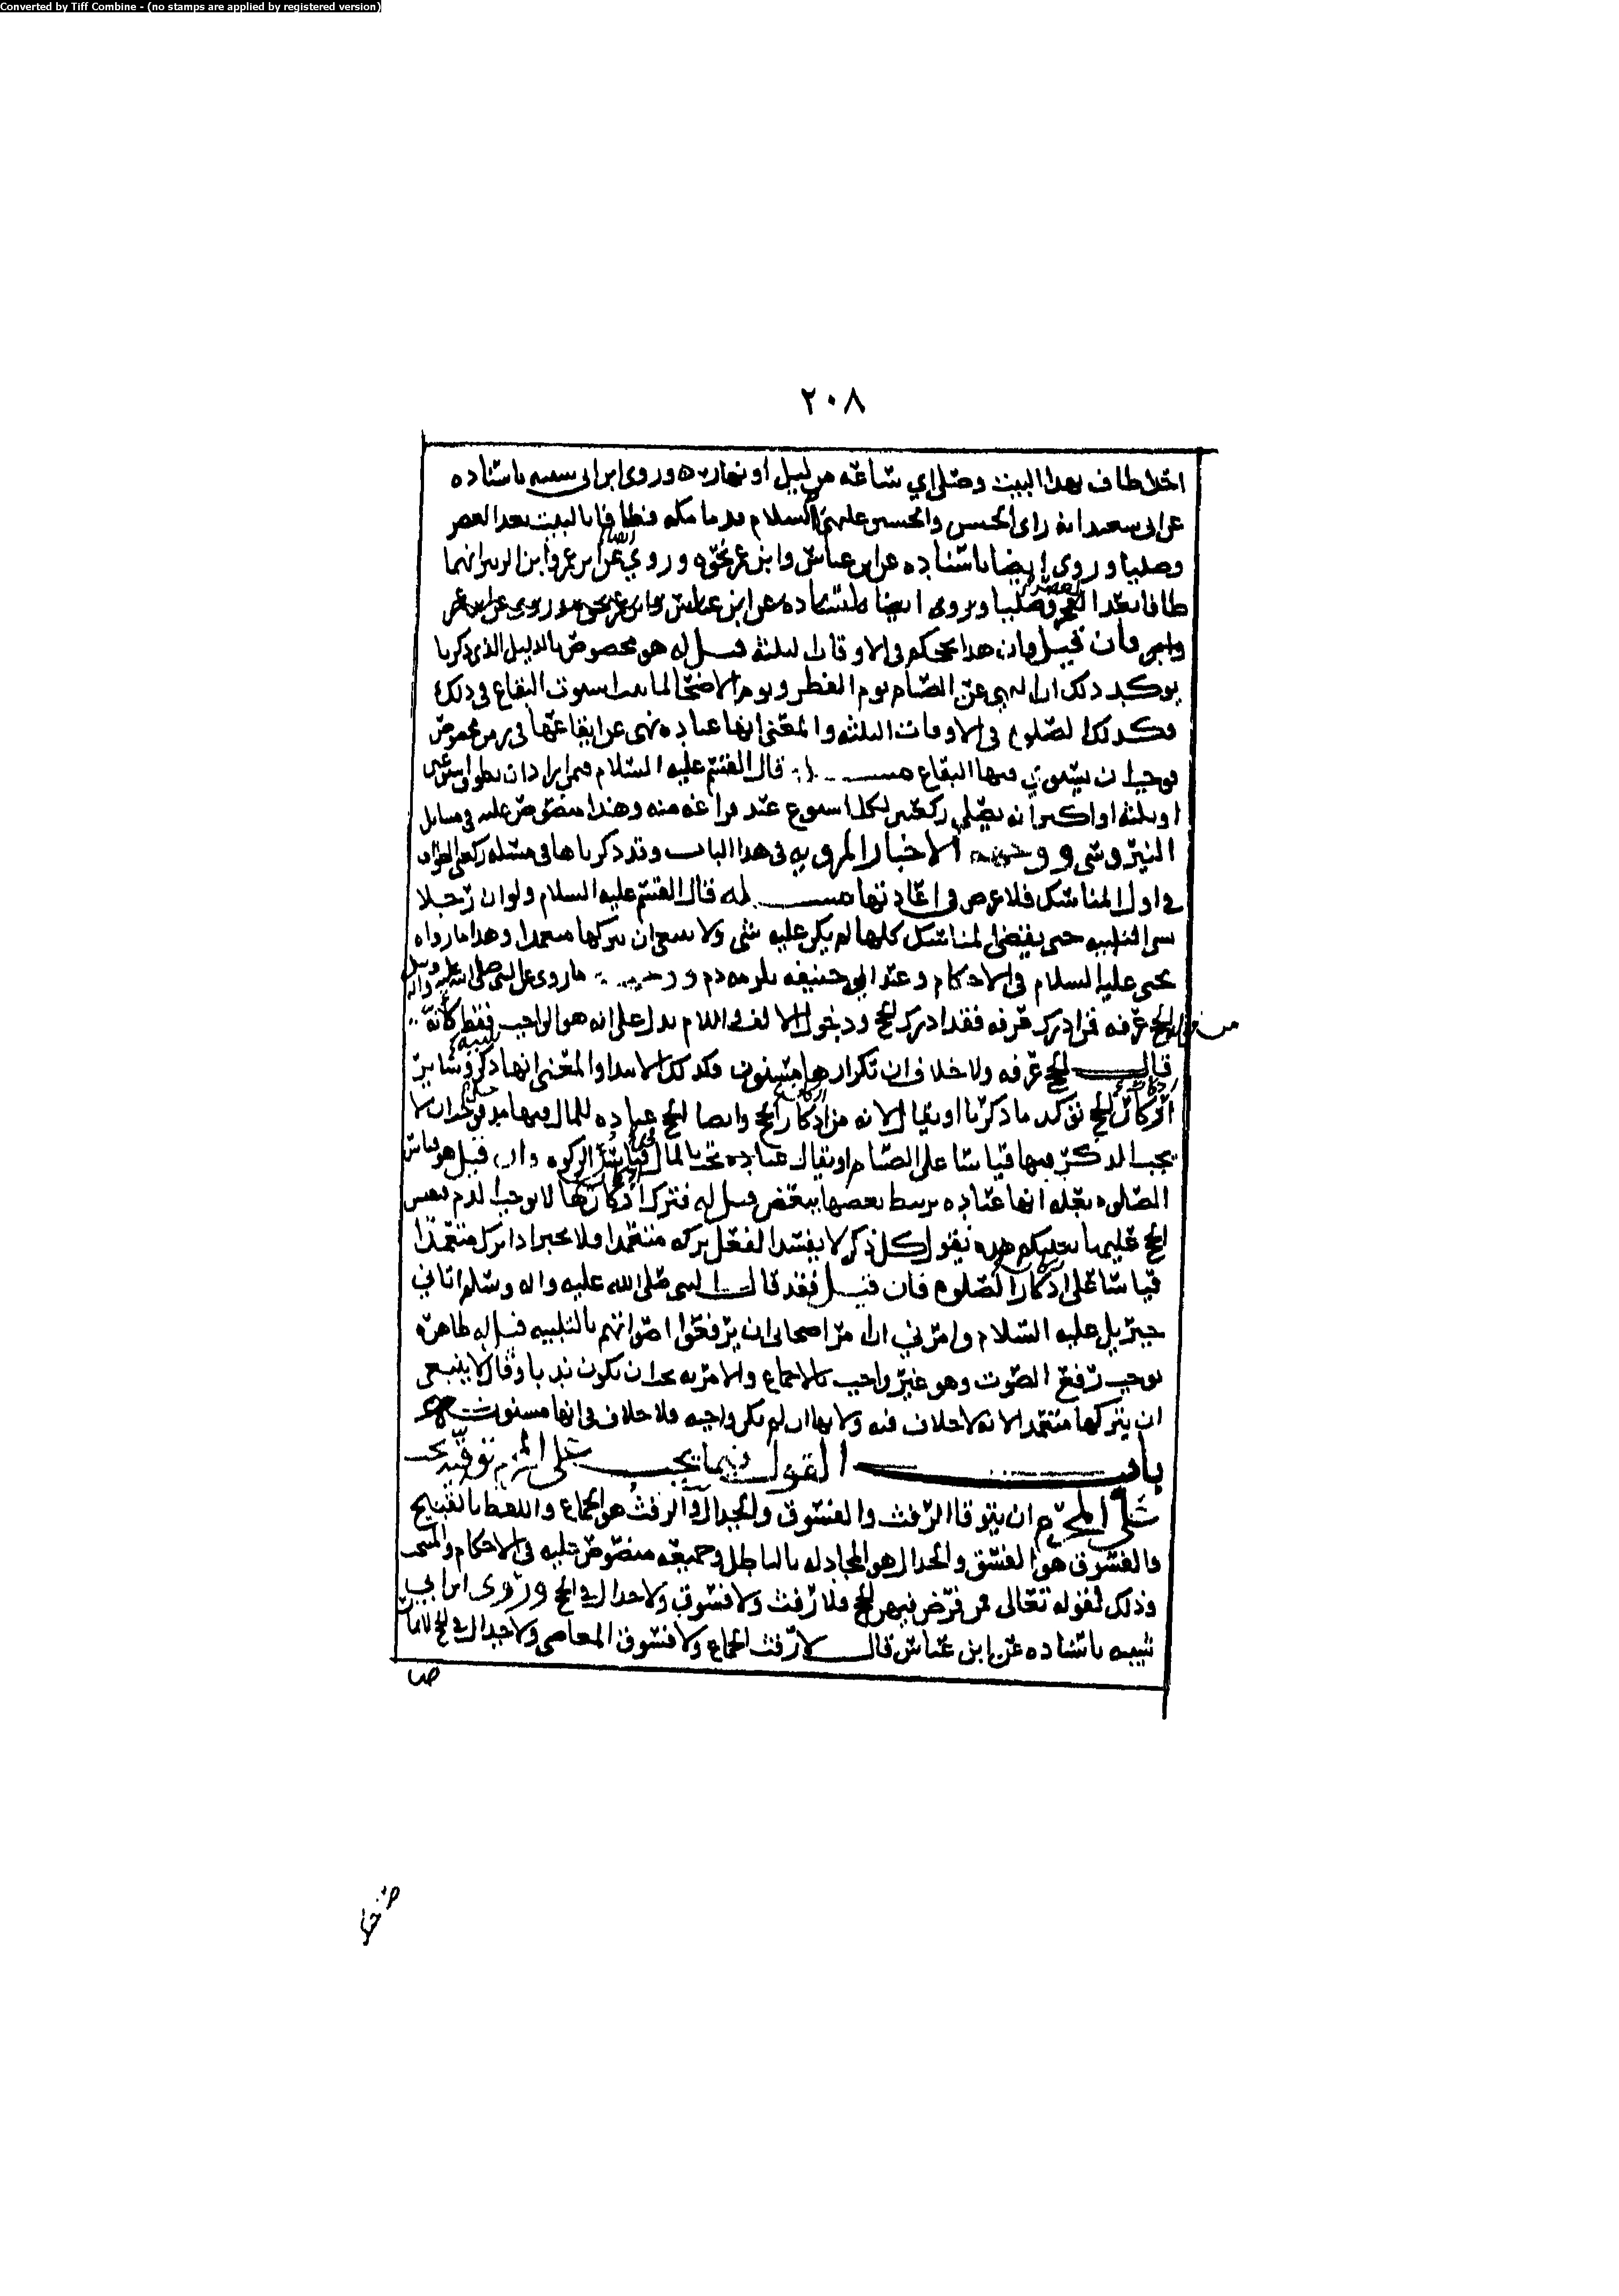 Converted by Tiff Combine - (no stamps are applied by registered version)
٢٠٨
احدا طاف بهذا البيت وصلى اي ساعة من ليل او نهار وروى ابن ابي شيبة باسناده
عن ابي سعيد انه راى الحسن والحسين عليهما السلام قدما مكة فطافا بالبيت بعد العصر
وصليا وروى ايضا باسناده عن ابن عباس وابن عمر نحوه وروي ايضا عن ابن عمر وابن الزبير انهما
طافا بعد الفجر وصليا وروى ايضا باسناده عن ابن عباس
فان قيل فان هذا حكم في الاوقات الثلثة قيل له هو مخصوص بالدليل الذي ذكرنا
يوكد ذلك ان النهي عن الصيام يوم الفطر ويوم الاضحى لما استوت البقاع في ذلك
فكذلك الصلوة في الاوقات الثلثة والمعنى انها عبادة نهى عن ايقاعها في زمن مخصوص
فوجب ان يستوي فيها البقاع مسئلة قال القسم عليه السلام فيمن اراد ان يطوف اسبوعين
او ثلثة او اكثر انه يصلي ركعتين لكل اسبوع عند فراغه منه وهذا منصوص عليه في مسايل
النيروسي ووجهه الاخبار المروية في هذا الباب وقد ذكرناها في مسئلة ركعتي الطواف
في اول المناسك فلا غرض في اعادتها مسئلة قال القسم عليه السلام ولو ان رجلا
نسي التلبية حتى يقضي المناسك كلها لم يكن عليه شي ولا ينبغي ان يتركها متعمدا وهذا ما رواه
يحيى عليه السلام في الاحكام وعند ابي حنيفة يلزمه دم ووجهه ما روى عن النبي صلى الله عليه واله وسلم
الحج عرفة فمن ادرك عرفة فقد ادرك الحج ودخول الالف واللام يدل على انه هو الواجب فقط كانه
قال الحج عرفة ولا خلاف ان تكرارها مسنون فكذلك الابتداء والمعنى انها ذكر وسائر
اذكار الحج تؤكد ما ذكرنا او يقال لانه من اذكار الحج وايضا الحج عبادة للمال فيها مدخل فوجب ان لا
يجب الذكر فيها قياسا على الصيام او يقال عبادة تجب بالمال قياسا على الزكوة وان قيل هو قياس
الصلوة بعلة انها عبادة يرتبط بعضها ببعض قيل له فترك اذكارها لا يوجب الدم فقس
الحج عليها بعلتكم هذه نقول كل ذكر لا يفسد الفعل بتركه متعمدا فلا يجبر اذا ترك متعمدا
قياسا على اذكار الصلوة فان قيل فقد قال النبي صلى الله عليه واله وسلم اتاني
جبريل عليه السلام وامرني ان امر اصحابي ان يرفعوا اصواتهم بالتلبية قيل له ظاهره
يوجب رفع الصوت وهو غير واجب بالاجماع والامر به يجب ان يكون ندبا وقال لا ينبغي
ان يتركها متعمدا لانه لا خلاف فيه ولانها ان لم تكن واجبة فلا خلاف في انها مسنونة
باب القول فيما يجب على المحرم توقيه يجب
على المحرم ان يتوقا الرفث والفسوق والجدال والرفث هو الجماع واللفظ بالقبيح
والفسوق هو الفسق والجدال هو المجادلة بالباطل وجميعه منصوص عليه في الاحكام والمنتخب
وذلك لقوله تعالى فمن فرض فيهن الحج فلا رفث ولا فسوق ولا جدال في الحج وروى ابن ابي
شيبة باسناده عن ابن عباس قال لا رفث الجماع ولا فسوق المعاصي ولا جدال في الحج